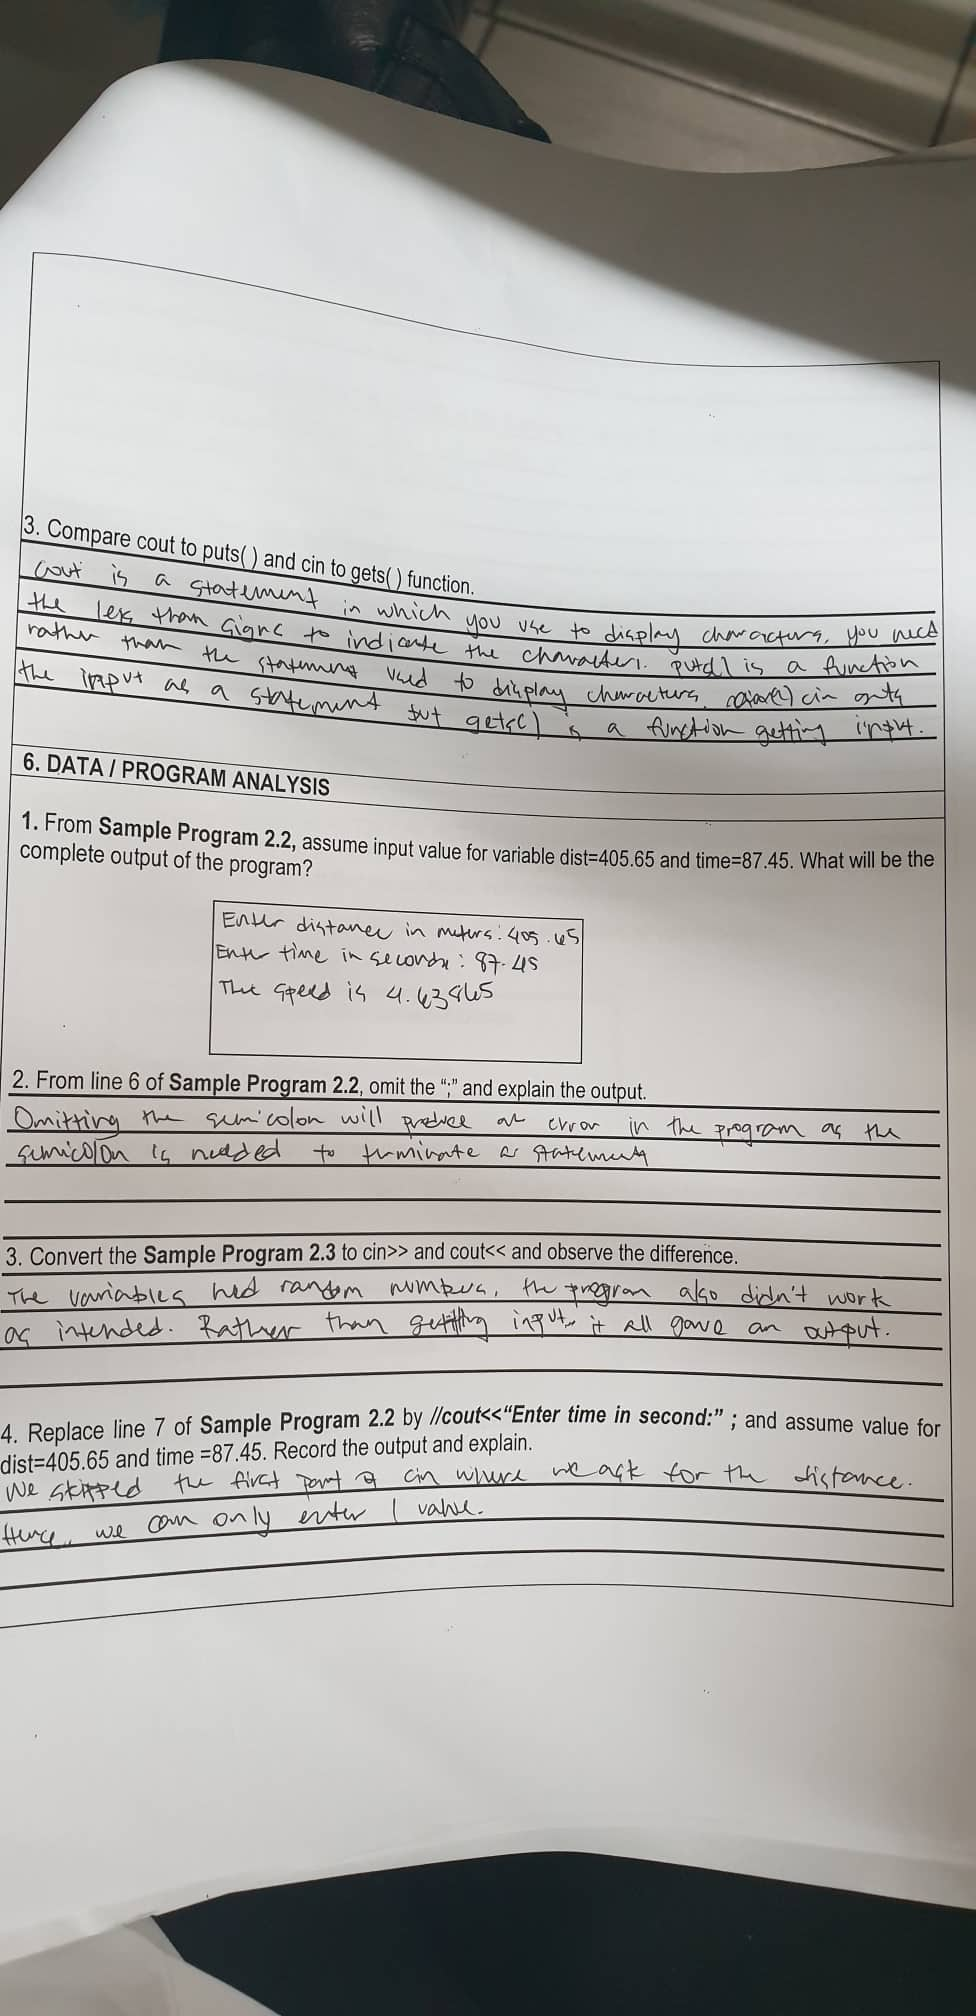 3. Compare cout to puts( ) and cin to gets( ) function.
cout is a statement in which you use to display characters, you need
the less than signs to indicate the characters. puts() is a function
rather than the statement used to display characters. cin gets
the input as a statement but gets() is a function getting input.
6. DATA / PROGRAM ANALYSIS
1. From Sample Program 2.2, assume input value for variable dist=405.65 and time=87.45. What will be the
complete output of the program?
Enter distance in meters: 405.65
Enter time in seconds: 87.45
The speed is 4.63865
2. From line 6 of Sample Program 2.2, omit the “;” and explain the output.
Omitting the semicolon will produce an error in the program as the
semicolon is needed to terminate a statement
3. Convert the Sample Program 2.3 to cin>> and cout<< and observe the difference.
The variables had random numbers, the program also didn't work
as intended. Rather than getting input, it all gave an output.
4. Replace line 7 of Sample Program 2.2 by //cout<<“Enter time in second:” ; and assume value for
dist=405.65 and time =87.45. Record the output and explain.
We skipped the first part of cin where we ask for the distance.
Hence, we can only enter 1 value.